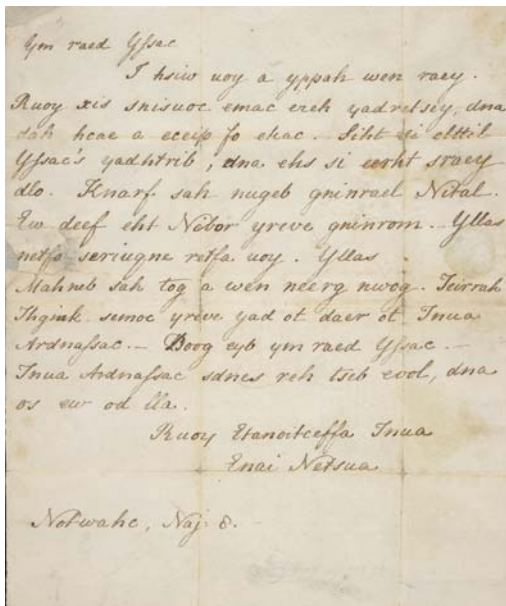 Ym raed Yſsac
I hsiw uoy a yppah wen raey.
Ruoy xis snisuoc emac ereh yadretsey, dna
dah hcae a eceip fo ekac. Siht si elttil
Yſsac's yadhtrib, dna ehs si eerht sraey
dlo. Knarf sah nugeb gninrael Nital.
Ew deef eht Nibor yreve gninrom. Yllas
netfo seriuqne retfa uoy. Yllas
Mahneb sah tog a wen neerg nwog. Teirrah
Thgink semoc yreve yad ot daer ot Tnua
Ardnaſsac. — Doog eyb ym raed Yſsac. —
Tnua Ardnaſsac sdnes reh tseb evol, dna
os ew od lla.
Ruoy Etanoitceffa Tnua
Enaj Netsua
Notwahc, Naj: 8. —